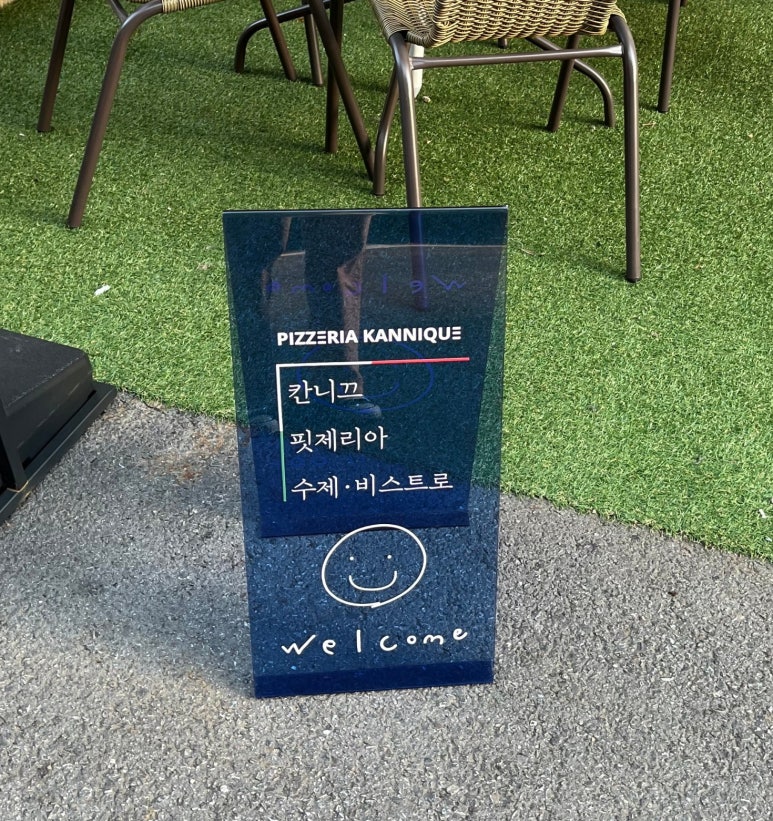 PIZZERIA KANNIQUE
칸니끄
핏제리아
수제·비스트로
welcome